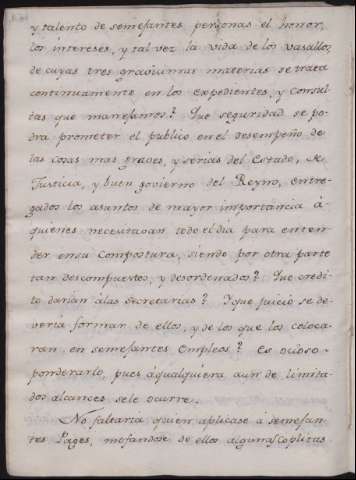 y talento de semejantes personas el honor,
los intereses, y tal vez la vida de los vasallos,
de cuyas tres gravisimas materias se trata
continuamente en los expedientes, y consul
tas que manejamos? Que seguridad se po
dra prometer el publico en el desempeño de
las cosas mas graves, y serias del Estado, de
Justicia, y buen govierno del Reyno, entre
gados los asuntos de mayor importancia á
quienes necesitavan todo el dia para enten
der en su compostura, siendo por otra parte
tan descompuestos, y desordenados? Que credi
to darian á las Secretarias? Y que juicio se de
veria formar de ellos, y de los que los coloca
ran, en semejantes empleos? Es ocioso
ponderarlo, pues á qualquiera aun de limita
dos alcances se le ocurre.
No faltaria quien aplicase á semejan
tes Pages, mofandose de ellos algunas coplitas